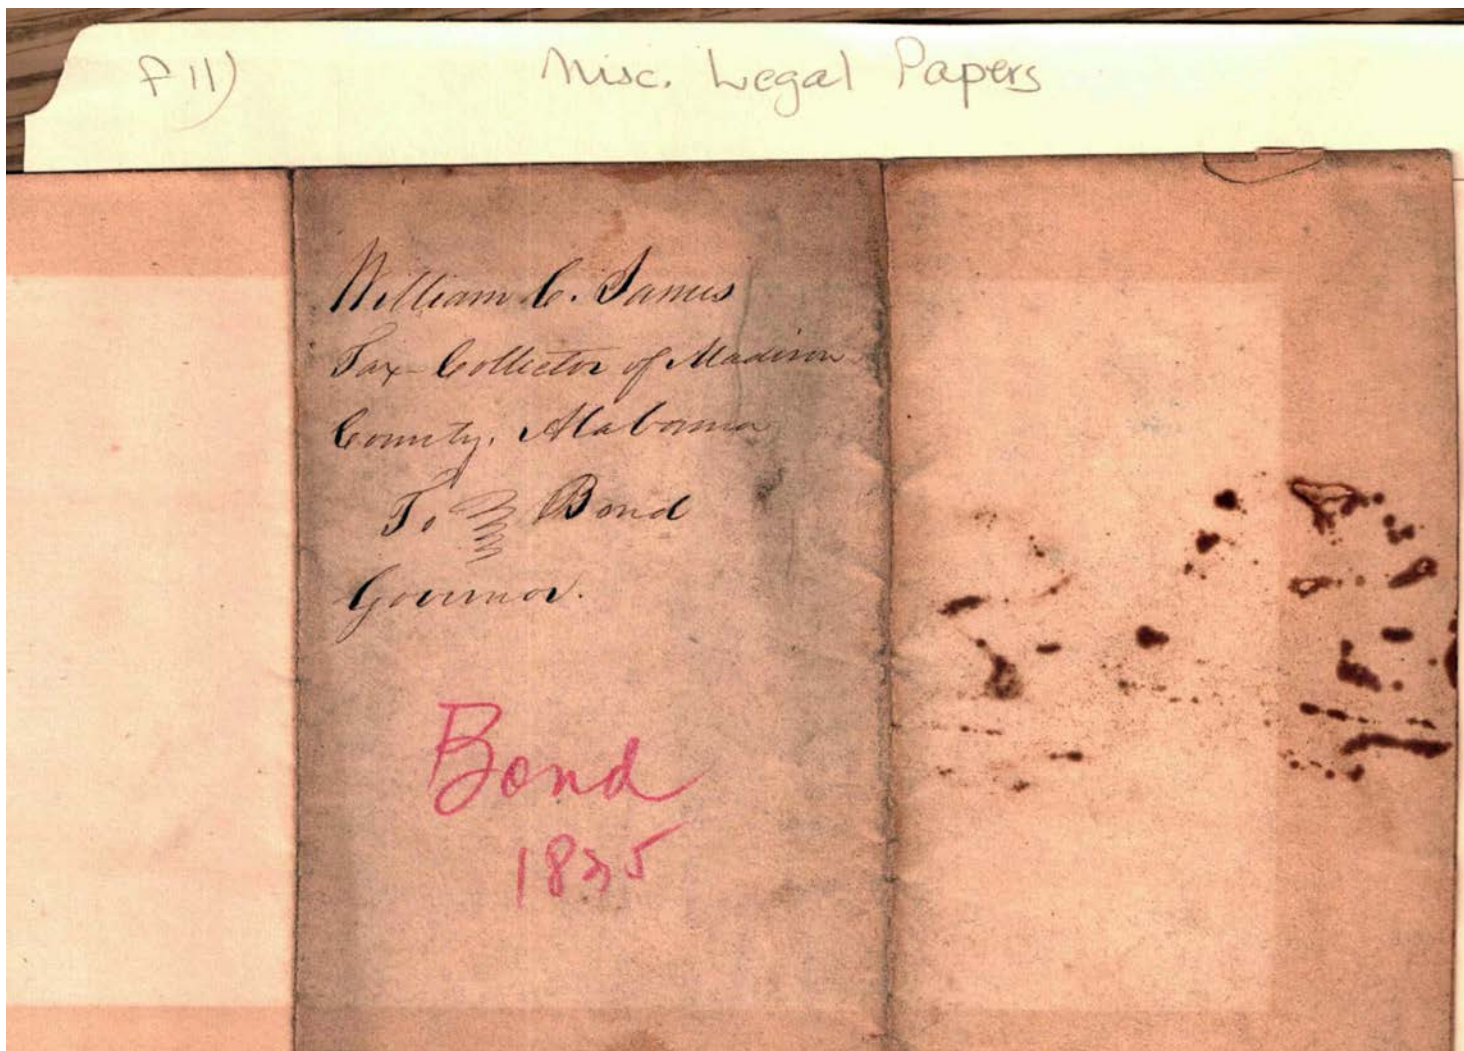 F11) Misc. Legal Papers
William C. James
Tax Collector of Madison
County, Alabama
To Bond
Governor.
Bond
1835